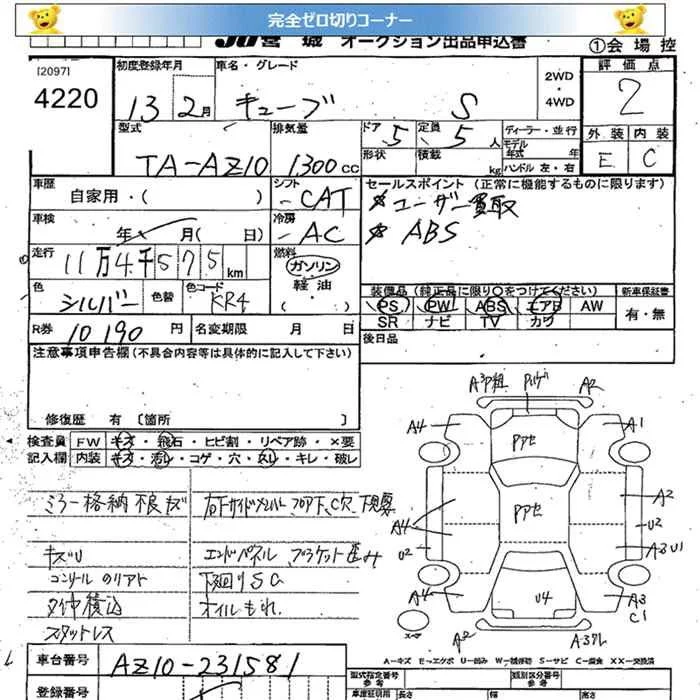 完全ゼロ切りコーナー
JU宮城 オークション出品申込書
①会場控
[2097]
4220
初度登録年月
13 2月
車名・グレード
キューブ S
2WD
・
4WD
評価点
2
外装 内装
E C
型式
TA-AZ10
排気量
1,300cc
ドア 5
定員 5人
形状
積載 kg
ディーラー・並行
モデル
年式 年
ハンドル 左・右
車歴
自家用・( )
シフト
CAT
セールスポイント(正常に機能するものに限ります)
ユーザー買取
ABS
車検
年 月( 日)
冷房
AC
走行
11万4千575km
燃料
ガソリン
軽油
( )
色
シルバー
色替
色コード
KR4
装備品(純正品に限り○をつけてください)
PS PW ABS エアB AW
SR ナビ TV カワ
新車保証書
有・無
R券 10190円
名変期限 月 日
後日品
注意事項申告欄(不具合内容等は具体的に記入して下さい)
修復歴 有〔箇所 〕
検査員
記入欄
FW キズ・飛石・ヒビ割・リペア跡・×要
内装 キズ・汚レ・コゲ・穴・スレ・キレ・破レ
ミラー格納不良キズ
キズU
コンソールのリアト
タイヤ積込
スタットレス
右下サイドメンバー フロア下、C穴、下見要
エンドパネル ブラケット歪み
下回りSC
オイルもれ
A3P粗
A2
A4
A1
PPアセ
PPアセ
A4
U2
A2
U2
A3U1
A4
U4
A3
C1
A2
A3アレ
スーマ
A―キズ E―エクボ U―凹み W―補修跡 S―サビ C―腐食 XX―交換済
車台番号
AZ10-231581
登録番号
型式指定番号
参考
類別区分番号
参考
車庫証明用 長さ 幅 高さ